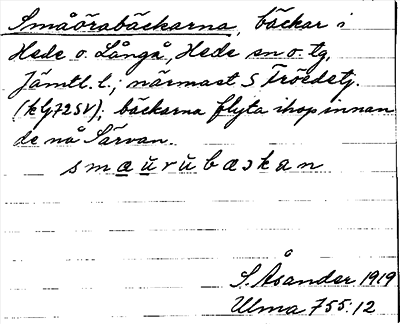 Småörabäckarna, bäckar i
Hede o. Långå, Hede sn o. tg,
Jämtl. l.; närmast S Tröedetj.
(kbl 72SV); bäckarna flyta ihop innan
de nå Särvan.
smæŭrŭbæɔkan
S. Åsander 1919
Ulma 755:12